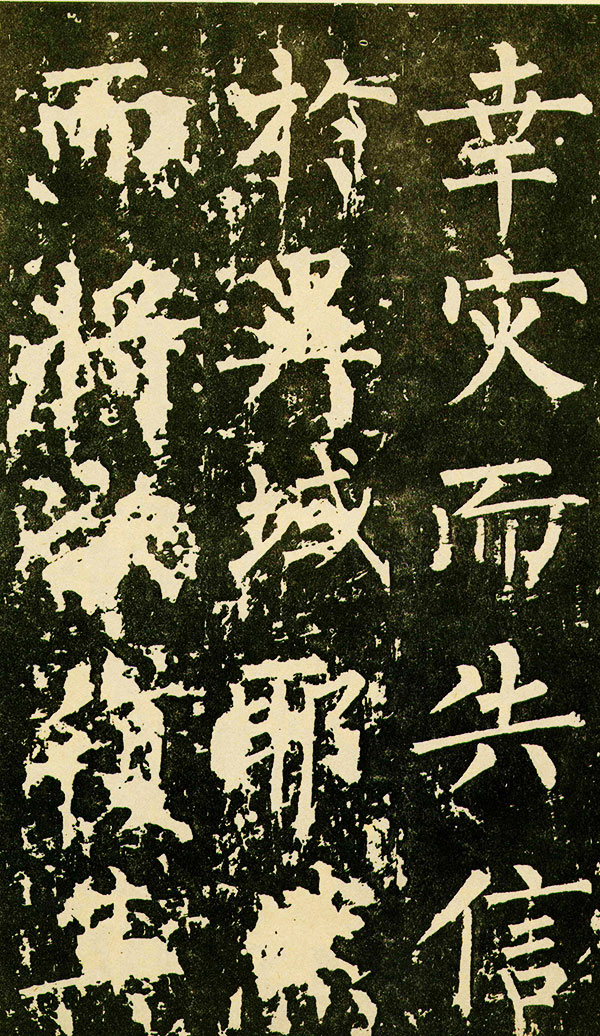 幸灾而失信
於異域耶
而將復